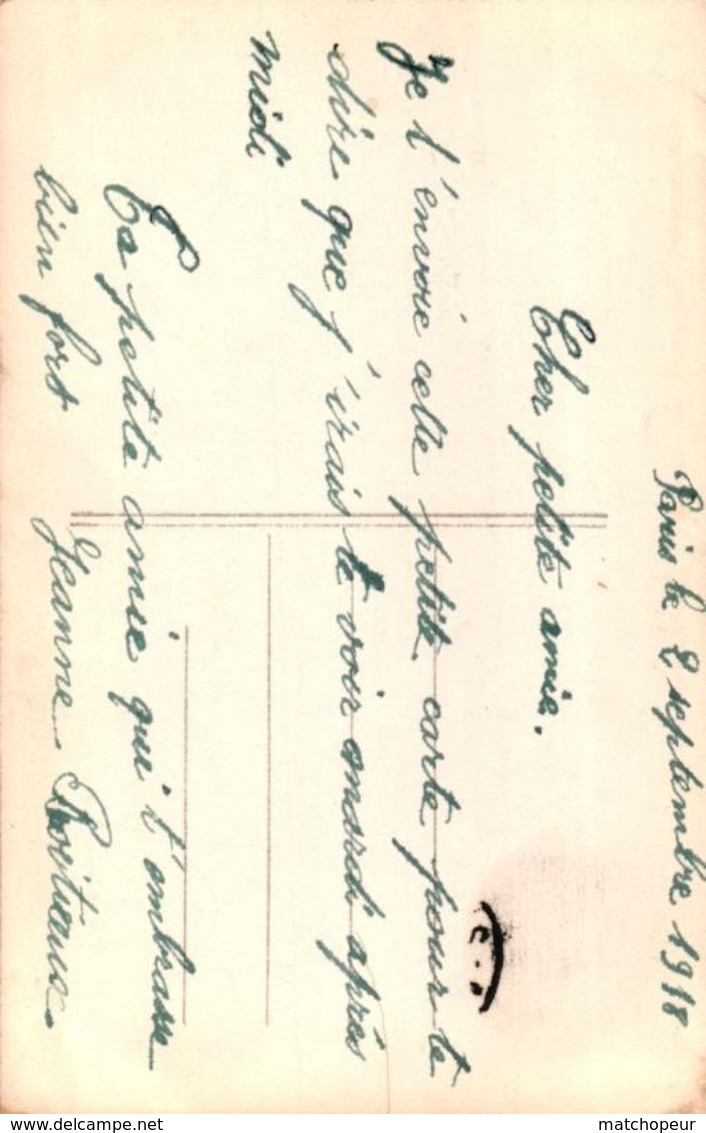 Paris le 2 septembre 1918
Cher petite amie.
Je t'envoie cette petite carte pour te
dire que j'irais te voir mardi après
midi
Ta petite amie qui t'embrasse
bien fort Jeanne
matchopeur